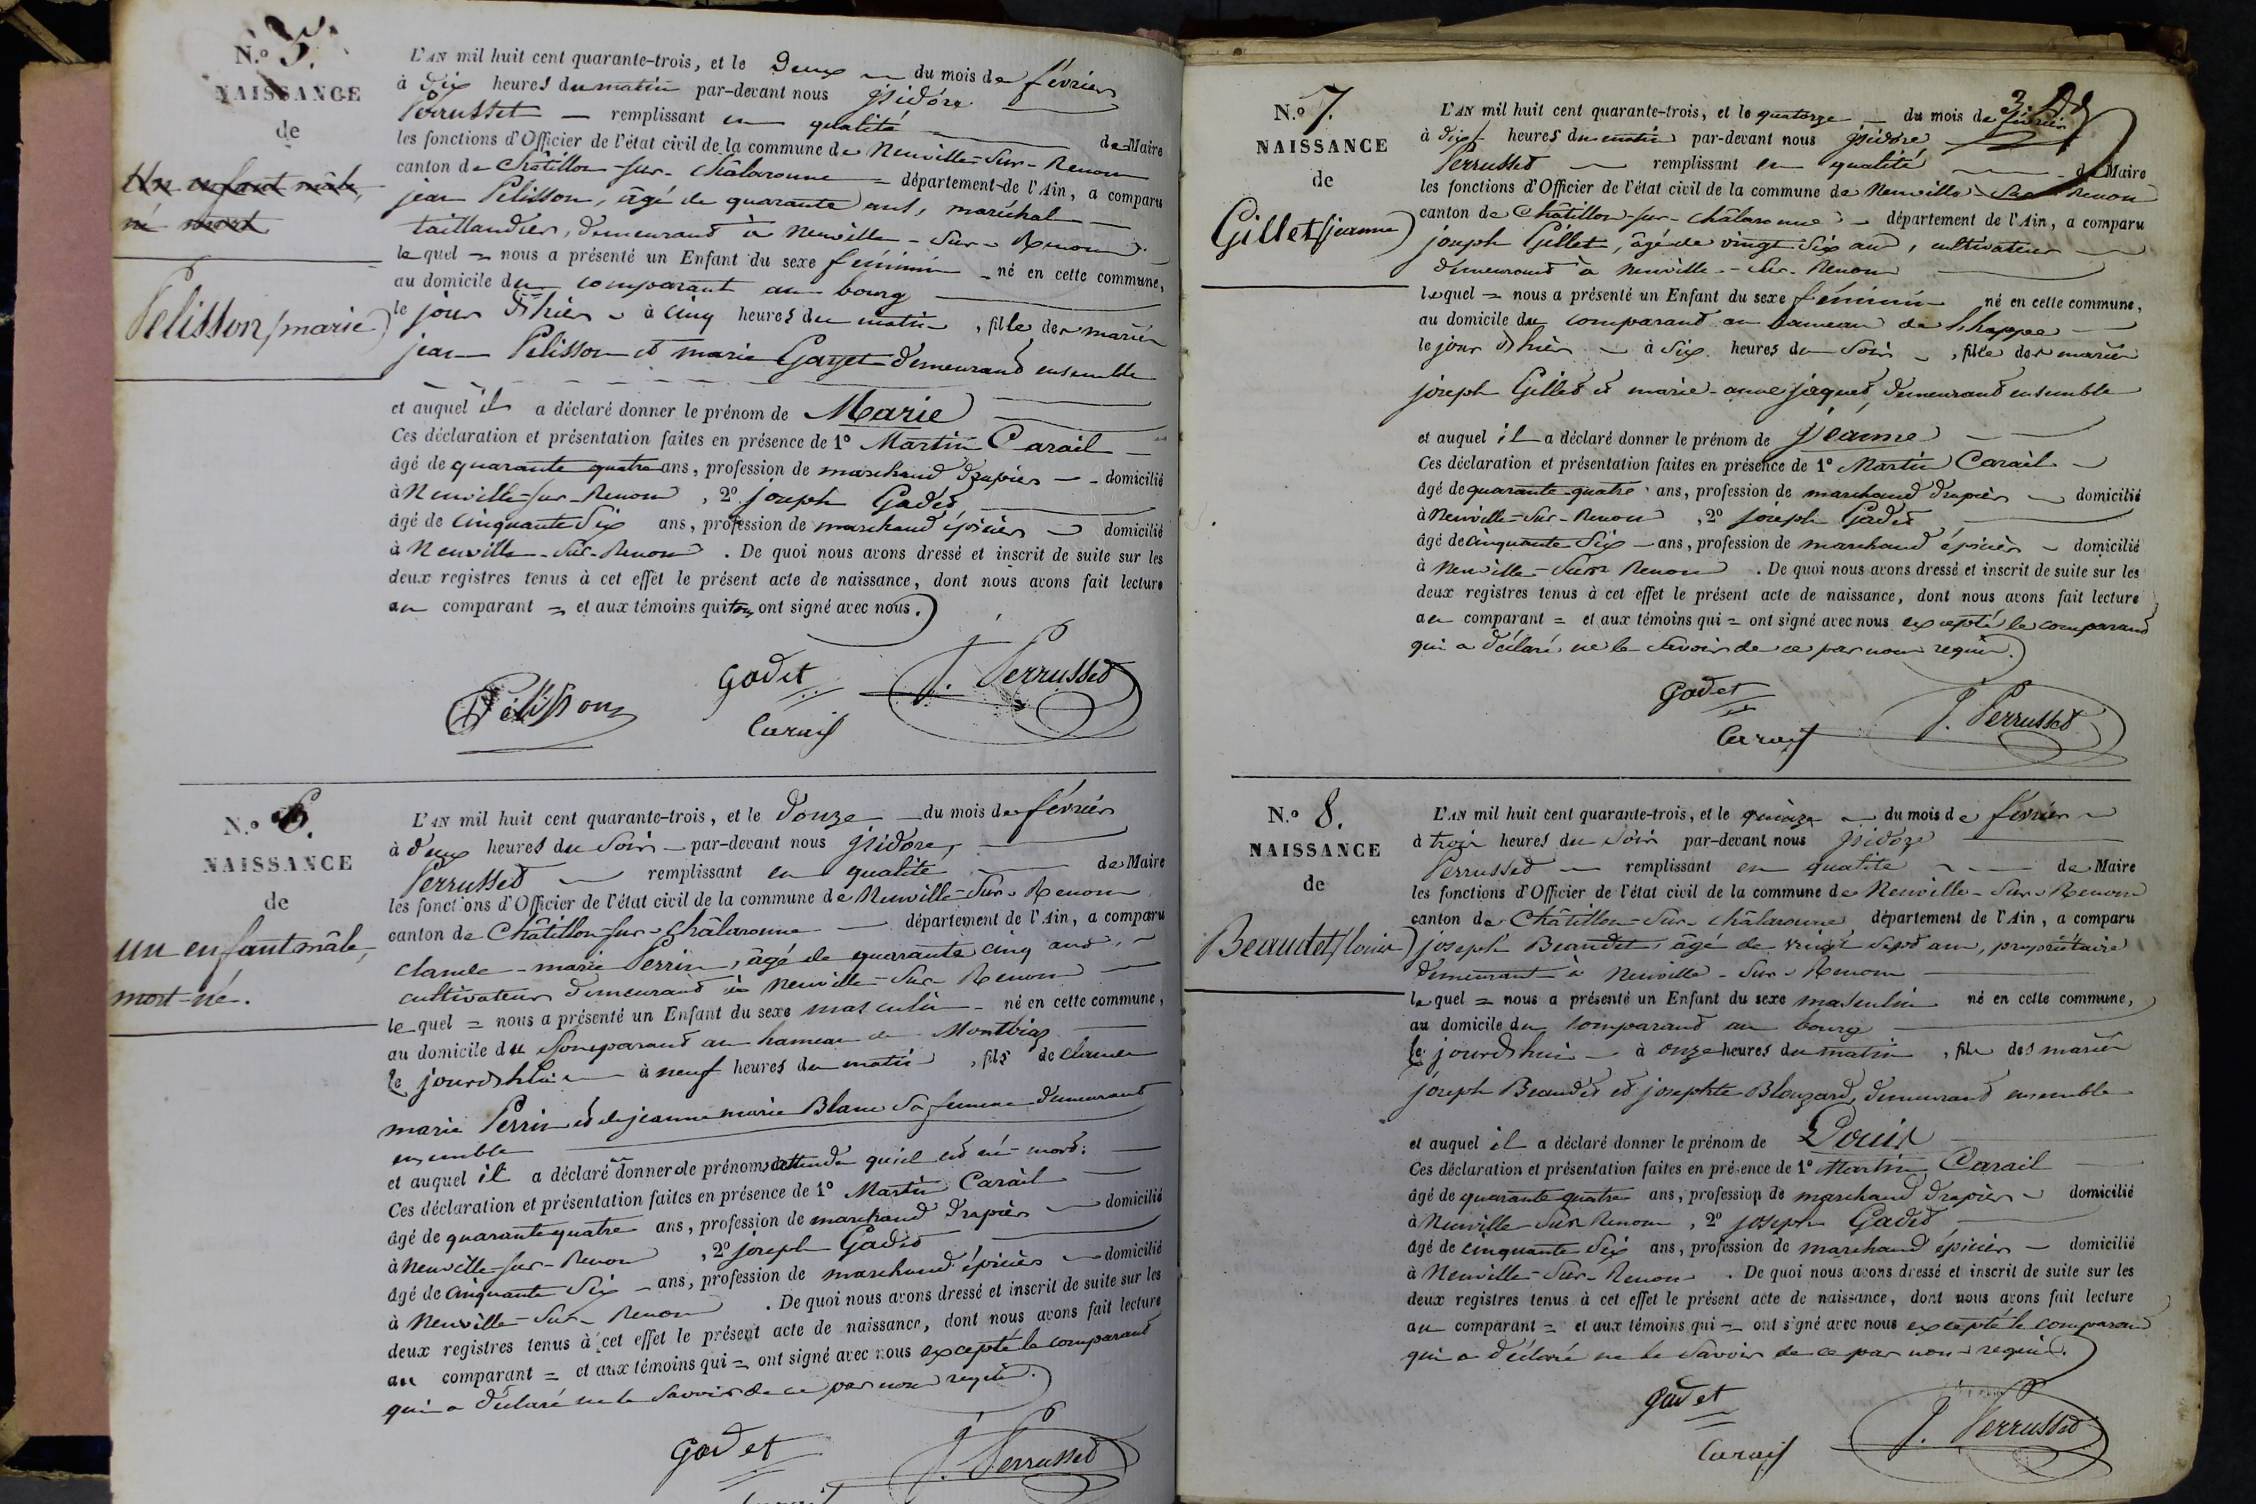 N.o 5.
NAISSANCE
de
Un enfant mâle,
né mort
Pelisson (marie)
L'AN mil huit cent quarante-trois, et le Deux du mois de février
à dix heures du matin par-devant nous jsidore
Perrusset remplissant en qualité de Maire
les fonctions d'Officier de l'état civil de la commune de Neuville-Sur-Renom
canton de Châtillon-sur-Châlaronne département de l'Ain, a comparu
jean Pelisson, âgé de quarante ans, maréchal
taillandier, demeurand à Neuville-Sur-Renom
lequel = nous a présenté un Enfant du sexe féminin né en cette commune,
au domicile du comparant au bourg
le jour d'hier à cinq heures du matin, fille des mariés
jean Pelisson et marie Gayet demeurand ensemble
et auquel il a déclaré donner le prénom de Marie
Ces déclaration et présentation faites en présence de 1o Martin Carail
âgé de quarante quatre ans, profession de marchand Drapier domicilié
à Neuville-sur-Renom, 2o joseph Gadet
âgé de cinquante Six ans, profession de marchand épicier domicilié
à Neuville-Sur-Renom. De quoi nous avons dressé et inscrit de suite sur les
deux registres tenus à cet effet le présent acte de naissance, dont nous avons fait lecture
au comparant = et aux témoins qui tous ont signé avec nous.
Pélisson
Gadet
J. Perrusset
Carail
N.o 6.
NAISSANCE
de
un enfant mâle,
mort-né.
L'AN mil huit cent quarante-trois, et le Douze du mois de février
à deux heures du Soir par-devant nous jsidore
Perrusset remplissant en qualité de Maire
les fonctions d'Officier de l'état civil de la commune de Neuville-Sur-Renom
canton de Châtillon-sur-Châlaronne département de l'Ain, a comparu
claude-marie Perrin, âgé de quarante cinq ans,
cultivateur demeurand à Neuville-Sur-Renom
lequel = nous a présenté un Enfant du sexe masculin né en cette commune,
au domicile du Comparand au hameau de Montbiaz
le jourd'hui à neuf heures du matin, fils de claude
marie Perrin et de jeanne marie Blanc Sa femme demeurant
ensemble
et auquel il a déclaré donner de prénom attendu qu'il est né mort.
Ces déclaration et présentation faites en présence de 1o Martin Carail
âgé de quarante quatre ans, profession de marchand Drapier domicilié
à Neuville-sur-Renom, 2o joseph Gadet
âgé de cinquante Six ans, profession de marchand épicier domicilié
à Neuville-Sur-Renom. De quoi nous avons dressé et inscrit de suite sur les
deux registres tenus à cet effet le présent acte de naissance, dont nous avons fait lecture
au comparant = et aux témoins qui = ont signé avec nous excepté le comparant
qui a déclaré ne le Savoir de ce par nous requis.
Gadet
J. Perrusset
Carail
N.o 7.
NAISSANCE
de
Gillet (jeanne)
L'AN mil huit cent quarante-trois, et le quatorze du mois de février
à dix heures du matin par-devant nous jsidore
Perrusset remplissant en qualité de Maire
les fonctions d'Officier de l'état civil de la commune de Neuville-Sur-Renom
canton de Châtillon-sur-Châlaronne département de l'Ain, a comparu
joseph Gillet, âgé de vingt Six ans, cultivateur
demeurand à Neuville-Sur-Renom
lequel = nous a présenté un Enfant du sexe féminin né en cette commune,
au domicile du comparand au hameau de
le jour d'hier à Six heures du Soir, fille des mariés
joseph Gillet et marie-anne jaquet, demeurand ensemble
et auquel il a déclaré donner le prénom de Jeanne
Ces déclaration et présentation faites en présence de 1o Martin Carail
âgé de quarante-quatre ans, profession de marchand drapier domicilié
à Neuville-Sur-Renom, 2o joseph Gadet
âgé de cinquante Six ans, profession de marchand épicier domicilié
à Neuville-Sur-Renom. De quoi nous avons dressé et inscrit de suite sur les
deux registres tenus à cet effet le présent acte de naissance, dont nous avons fait lecture
au comparant = et aux témoins qui = ont signé avec nous excepté le comparand
qui a déclaré ne le Savoir de ce par nous requis.
Gadet
J. Perrusset
Carail
N.o 8.
NAISSANCE
de
Beaudet (louis)
L'AN mil huit cent quarante-trois, et le quinze du mois de février
à trois heures du Soir par-devant nous jsidore
Perrusset remplissant en qualité de Maire
les fonctions d'Officier de l'état civil de la commune de Neuville-Sur-Renom
canton de Châtillon-Sur-Châlaronne département de l'Ain, a comparu
joseph Beaudet, âgé de vingt Sept ans, propriétaire
demeurant à Neuville-Sur-Renom
lequel = nous a présenté un Enfant du sexe masculin né en cette commune,
au domicile du comparand au bourg
le jourd'hui à onze heures du matin, fils des mariés
joseph Beaudet et josephte Blouzard, demeurand ensemble
et auquel il a déclaré donner le prénom de Louis
Ces déclaration et présentation faites en présence de 1o Martin Carail
âgé de quarante quatre ans, profession de marchand drapier domicilié
à Neuville-Sur-Renom, 2o joseph Gadet
âgé de cinquante Six ans, profession de marchand épicier domicilié
à Neuville-Sur-Renom. De quoi nous avons dressé et inscrit de suite sur les
deux registres tenus à cet effet le présent acte de naissance, dont nous avons fait lecture
au comparant = et aux témoins qui = ont signé avec nous excepté le comparand
qui a déclaré ne le Savoir de ce par nous requis.
Gadet
J. Perrusset
Carail